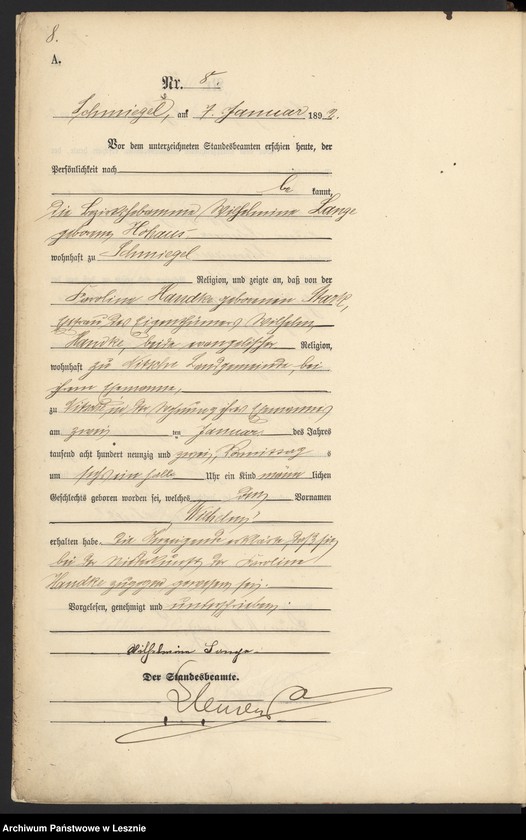 8.
A.
Nr. 8
Schmiegel, am 7. Januar 1892.
Vor dem unterzeichneten Standesbeamten erschien heute, der
Persönlichkeit nach
be kannt,
die Bezirkshebamme Wilhelmine Lange
geborene
wohnhaft zu Schmiegel
Religion, und zeigte an, daß von der
Karoline Handke geborenen Stark,
Ehefrau des Eigenthümers Wilhelm
Handke, beide evangelischer Religion,
wohnhaft zu Landgemeinde, bei
ihrem Ehemanne,
zu in der Wohnung ihres Ehemannes
am zwei ten Januar des Jahres
tausend acht hundert neunzig und zwei, Vormittag s
um sechs ein halb Uhr ein Kind männ lichen
Geschlechts geboren worden sei, welches den Vornamen
Wilhelm
erhalten habe. Die Anzeigende erklärte, daß sie
bei der Niederkunft der Karoline
Handke zugegen gewesen sei.
Vorgelesen, genehmigt und unterschrieben
Wilhelmine Lange
Der Standesbeamte.
Archiwum Państwowe w Lesznie